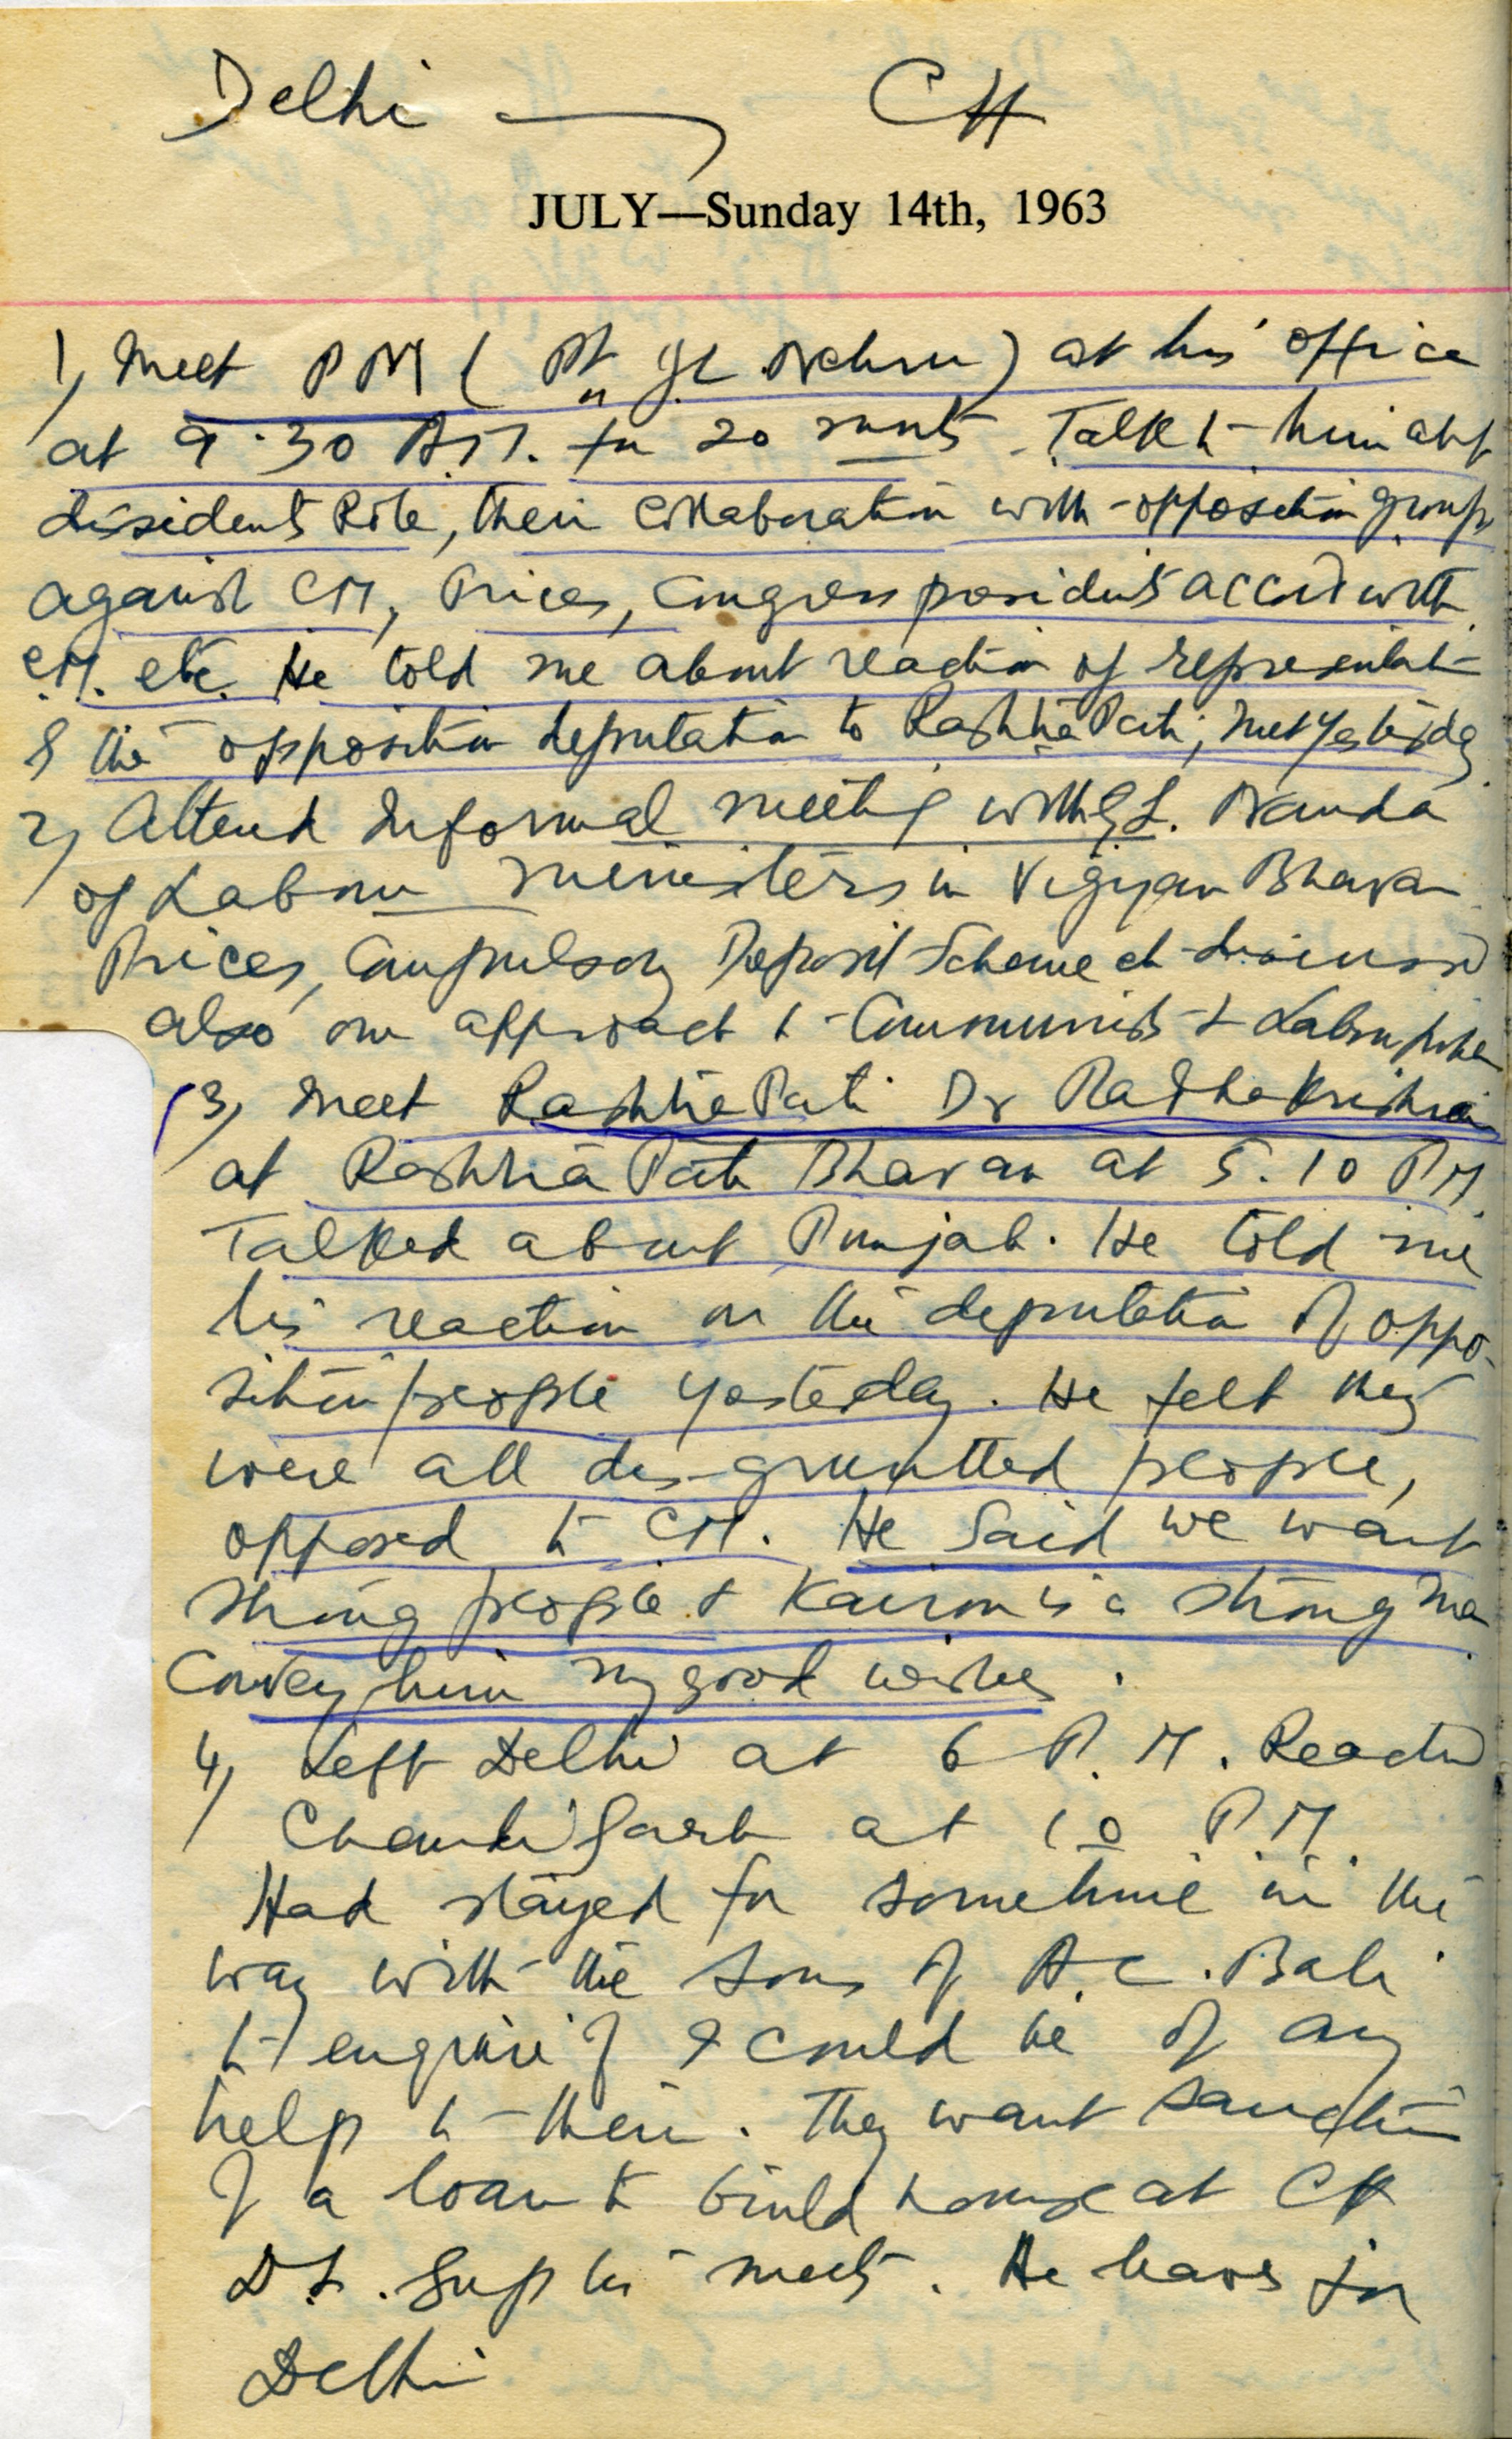 Delhi — CH
JULY—Sunday 14th, 1963
1, Meet PM ( Pt JL Nehru ) at his office
at 9.30 A.M. for 20 munts. Talk to him abt
dissidents Role, their collaboration with opposition groups
against CM, Prices, Congress presidents accord with
C.M. etc. He told me about reaction of representat
& the opposition deputation to RashtraPati, met yesterday
2, Attend Informal meeting with G.L. Nanda
of Labour ministers in Vigyan Bhavan
Prices, Compulsory Deposit Scheme etc discussed
also our approach to Communists & Labour
3, Meet RashtraPati Dr RadhaKrishnan
at RashtraPati Bhavan at 5.10 PM.
Talked about Punjab. He told me
his reaction on the deputation of oppo-
sition people yesterday. He felt they
were all dis-gruntted people,
opposed to CM. He said we want
strong people & Kairon is a strong man
Convey him my good wishes.
4, Left Delhi at 6 P.M. Reached
Chandigarh at 10 P.M.
Had stayed for sometime in the
way with the sons of A.C. Bali
to enquire if I could be of any
help to them. They want sanction
of a loan to build house at CH
D.L. Gupta meets. He leaves for
Delhi